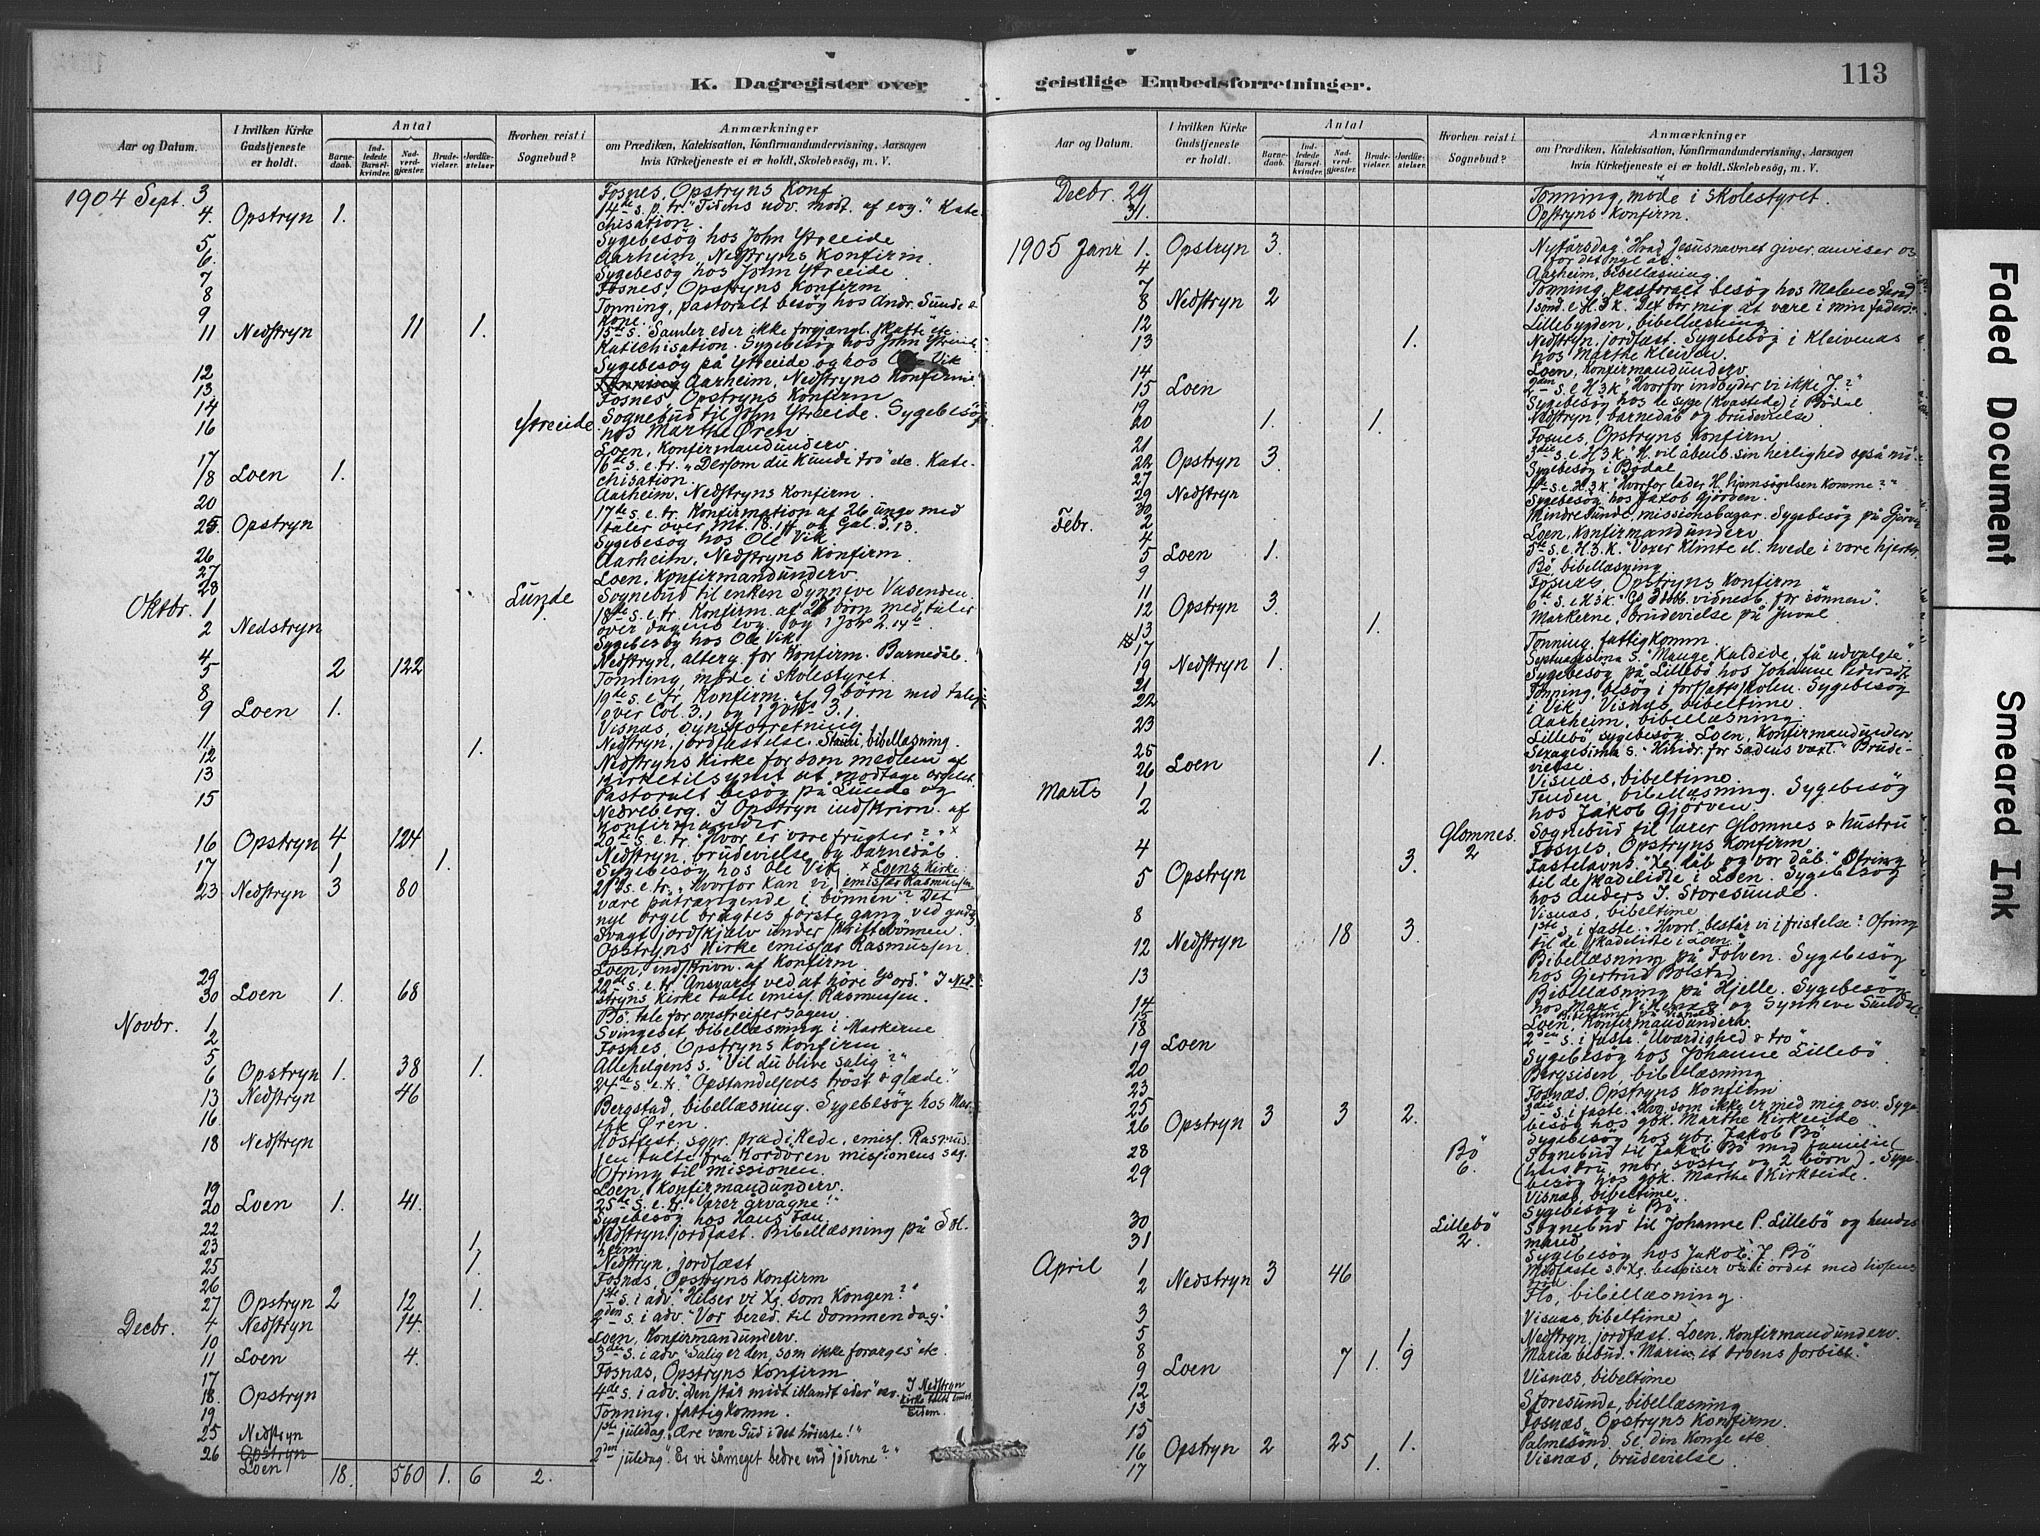 K. Dagregister over
Aar og Datum.
I hvilken Kirke Gudstjeneste er holdt.
Antal
Barnedaab.
Indledede Barselkvinder.
Nadverdgjæster.
Brudevielser.
Jordfæstelser
Hvorhen reist i Sognebud?
Anmærkninger
om Prædiken, Katekisation, Konfirmandundervisning, Aarsagen
hvis Kirketjeneste ei er holdt, Skolebesög, m. V.
1904 Sept. 3 Fosnes, Opstryns Konf.
4. Opstryn 1. 14de s. p. tr. modt. af evg." Kate-
chisation.
5 Sygebesög hos John Ytreeide
6. Aarheim, Nedstryns Konfirm.
7 Sygebesög hos John Ytreeide
8 Fosnes, Opstryns Konfirm
9 Tonning, pastoralt besög hos Andr. Sunde &
Kone.
11 Nedstryn 11 1. 15de s. Samler eder ikke forgjængl. skatte etc.
Katechisation. Sygebesög hos John Ytreeide
12 Sygebesög på Ytreeide og hos Ole Vik
13 Aarheim, Nedstryns Konfirm
14 Fosnes, Opstryns Konfirm
16 Ytreeide Sognebud til John Ytreeide. Sygebesög
hos Marthe Øren
17 Loen, Konfirmandunderv.
18 Loen 1. 16de s. e. tr. "Dersom du kunde tro" etc. Kate-
chisation.
20 Aarheim, Nedstryns Konfirm.
25. Opstryn 17de s. e. tr. Konfirmation af 26 unge med
taler over Mt. 18. 14 og Gal. 5. 13.
26 Sygebesög hos Ole Vik
27 Aarheim, Nedstryns Konfirm
28 Loen, Konfirmandunderv.
Oktbr. 1 Lunde Sognebud til enken Synneve Vasenden.
2 Nedstryn 18de s. e. tr. Konfirm. af börn med taler
over dagens evg. og 1 Joh 2.
4 Sygebesög hos Ole Vik
5 2 122 Nedstryn, alterg. for Konfirm. Barnedåb.
8 Tonning, möde i skolestyret.
9 Loen 1. 19de s. e. tr. Konfirm. af 9 börn med tale
over Col. 3.1 og 1 Joh 3.1.
11 Visnæs, synsforretning
12 1. Nedstryn, jordfæstelse. bibellæsning.
13 Nedstryns Kirke for som medlem af
Kirketilsynet at modtage orgelet.
15 Pastoralt besög på Sunde og
Nedreberg. I Opstryn indskrivn. af
Konfirmander
16 Opstryn 4 124 20de s. e. tr. "Hvor er vore frugter?" x
17 1 1. Nedstryn, brudevielse og barnedåb.
Sygebesög hos Ole Vik x Loens Kirke
emissær Rasmussen
23 Nedstryn 3 80 21de s. e. tr. "Hvorfor kan vi
være påtrængende i bönnen? Det
nye orgel brugtes förste gang ved gudstj
Svagt jordskjælv under skriftebönnen.
Opstryns Kirke emissær Rasmussen.
29 Loen, indskrivn. af Konfirm.
30 Loen 1. 68 22de s. e. tr. "Ansvaret ved at höre Gs ord." I Ned-
stryns Kirke talte emiss. Rasmussen.
Novbr. 1 Bö. tale for omstreifersagen.
2 Svingeset bibellæsning i Markerne
5 Fosnes, Opstryns Konfirm
6 Opstryn 1. 38 1. Allehelgens s. "Vil du blive salig?"
13 Nedstryn 46 24de s. e. tr. "Opstandelsens tröst & glæde."
16 Bergstad, bibellæsning. Sygebesög hos Mar-
the Øren.
18 Nedstryn Höstfest. sgpr. prædikede, emiss. Rasmus-
sen talte fra kordören missionens sag.
Ofring til missionen.
19 Loen, Konfirmandunderv.
20 Loen 1. 41. 25de s. e. tr. "Værer årvågne!"
22 Sygebesög hos Hans
23 1 Nedstryn jordfæst. Bibellæsning på Sol-
heim
25 1. Nedstryn, jordfæst
26 Fosnæs, Opstryns Konfirm
27 Opstryn 2 12 1. 1ste s. i adv. "Hilser vi Xg. som Kongen?"
Decbr. 4 Nedstryn 14. 2den s. i adv. "Vor bered. til dommens dag."
10 Loen, Konfirmandunderv.
11 Loen 4. 3die s. i adv. "Salig er den, som ikke forarges" etc
17 Fosnæs, Opstryns Konfirm
18. Opstryn 4de s. i adv. "Den står midt iblandt eder" I Nedstryn
kirke talte emis
Eidem.
19 Tonning, fattigkomm.
25 Nedstryn 1ste juledag. "Ære være Gud i det höieste!"
26 Opstryn 2den juledag. "Er vi såmeget bedre end jöderne?"
Loen 18. 560 1. 6 2.
113
geistlige Embedsforretninger.
Aar og Datum.
I hvilken Kirke Gudstjeneste er holdt.
Antal
Barnedaab.
Indledede Barselkvinder.
Nadverdgjæster.
Brudevielser.
Jordfæstelser.
Hvorhen reist i Sognebud?
Anmærkninger
om Prædiken, Katekisation, Konfirmandundervisning, Aarsagen
hvis Kirketjeneste ei er holdt, Skolebesög, m. V.
Decbr. 29 Tonning, möde i skolestyret.
31. Opstryns Konfirm.
1905 Janr 1. Opstryn 3. Nytårsdag "Hvad Jesusnavnet giver, anviser os
for det nye år."
4 Aarheim, bibellæsning.
7 Tonning, pastoralt besög hos Malene
8 Nedstryn 2 1 sönd. e. H. 3 K. Det bör mig at være i min faders
12 Lillebygden, bibellæsning
13 1. Nedstryn, jordfæst. Sygebesög i Kleivenes
hos Marthe Kleiven.
14 Loen, Konfirmandunderv.
15 Loen 2den s. e. H 3 K "Hvorfor indbyder vi ikke J?"
19 Sygebesög hos de syge i Bödal
20 1. 1. Nedstryn, barnedåb og brudevielse
21 Fosnes, Opstryns Konfirm
22 Opstryn 3. 3die s. e. H 3 K. "H. vil åbenb. sin herlighed også
27 Sygebesög i Bödal
29 Nedstryn 4de s. e. H. 3 K. "Hvorfor lader H. hjemsögelsen komme?"
30 Sygebesög hos Jakob Gjörven.
Febr. 2 Mindresunde, missionsbazar. Sygebesög på Gjörv
4 Loen, Konfirmandunderv.
5 Loen 1. 5te s. e. H. 3. K. "Voxer klinte el. hvede i vore hjerter
9 Bö, bibellæsning
11 Fosnæs, Opstryns Konfirm
12 Opstryn 3. 6te s. e. H 3 K vidnesb. for sönnen".
13 1. Markerne, brudevielse på Juval.
17 Tonning, fattigkomm.
19 Nedstryn 1. Septuagesima s. "Mange kaldede, få udvalgte"
21 Sygebesög på Lillebö hos Johanne Pedersd.
22 Tonning, besög i fortsatt skolen. Sygebesög
i Vik. Visnæs, bibeltime.
23 Aarheim, bibellæsning
25 Lillebö sygebesög. Loen, Konfirmandunderv.
26 Loen 1. Sexagesima s. "Hindr. for sædens vaxt." Brude-
vielse.
Marts 1 Visnæs, bibeltime.
2 Tenden, bibellæsning. Sygebesög
hos Jakob Gjörven.
Glomnes. 2 Sognebud til lærer Glomnes & hustru
4 Fosnes, Opstryns Konfirm.
5 Opstryn 3. Fastelavns. "Xg. dåb og vor dåb." Ofring
til de skadelidte i Loen. Sygebesög
hos Anders J. Storesunde.
8 Visnæs, bibeltime
12 Nedstryn 18 3. 1ste s. i faste. "Hvorl. består vi i fristelse? Ofring
til de skadelidte i Loen.
13 Bibellæsning på Folven. Sygebesög
hos Gjertrud Bolstad.
14 Bibellæsning på Hjelle. Sygebesög
15 hos Mari og Synneve
18 Loen, Konfirmandunderv.
19 Loen 2den s. i faste. "Uværdighed & tro"
20 Sygebesög hos Johanne Lillebö
23 Bergsiden bibellæsning
25 Fosnæs, Opstryns Konfirm
26 Opstryn 3 3 2. 3die s. i faste. "Hvo som ikke er med mig osv. Syge-
besög hos gbk. Marthe Kirkeeide
28 Sygebesög hos gbr. Jakob Bö
29 Bö 6. Sognebud til Jakob Bö med familie
(hustru, mbr. söster og 2 börn). Syge-
besög hos gbk. Marthe Kirkeeide.
Visnæs, bibeltime.
30 Sygebesög i Bö.
31 Lillebö 2. Sognebud til Johanne P. Lillebö og hendes
mand
April 1 Sygebesög hos Jakob J. Bö
2 Nedstryn 3 46 Midfaste s. "Xg. bespiser os i ordet med livsens
3 Flo, bibellæsning.
5 Visnæs, bibeltime
8 1. Nedstryn jordfæst. Loen, Konfirmandunderv.
9 Loen 7 1. 9 Mariæ bebud. "Maria et troens forbill."
12 Visnæs, bibeltime
13 Storesunde, bibellæsning
15 Fosnæs, Opstryns Konfirm.
16 Opstryn 2 25 1. Palmesönd. Se din Konge etc
17 1. Visnæs, brudevielse.
Faded Document
Smeared Ink